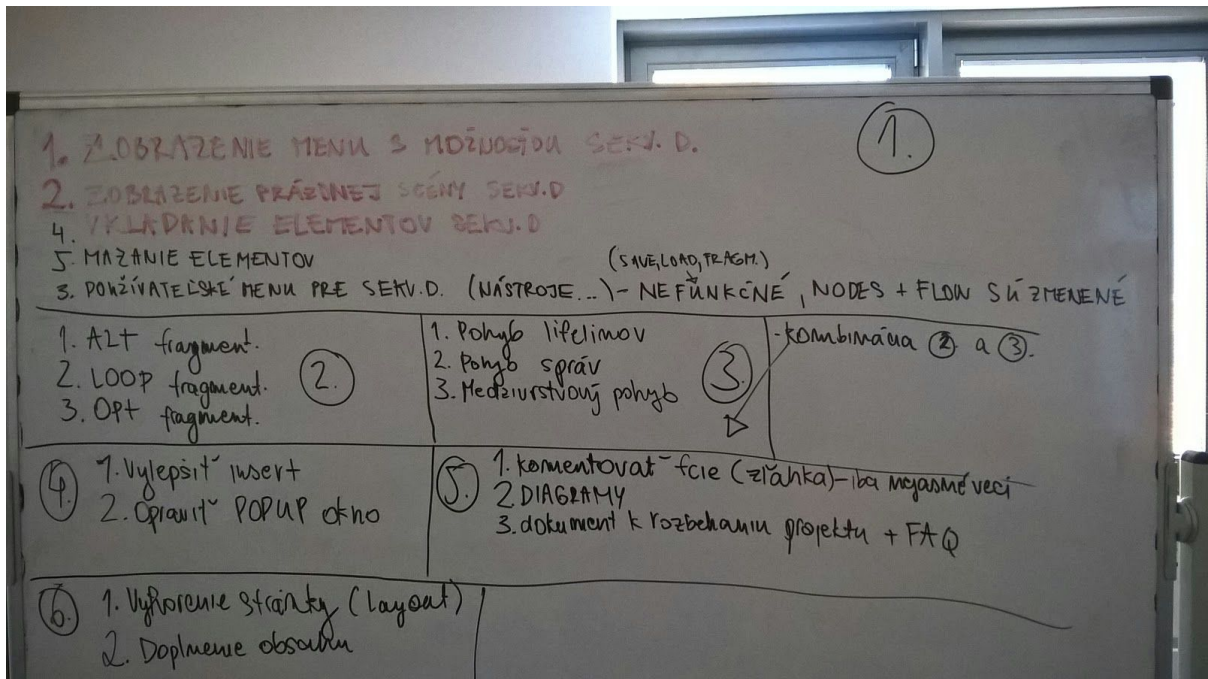 1.
1. ZOBRAZENIE MENU S MOŽNOSŤOU SEKV. D.
2. ZOBRAZENIE PRÁZDNEJ SCÉNY SEKV.D
4. VKLADANIE ELEMENTOV SEKV.D
5. MAZANIE ELEMENTOV
(SAVE, LOAD, FRAGM.)
3. POUŽÍVATEĽSKÉ MENU PRE SEKV.D. (NÁSTROJE...) - NEFUNKČNÉ, NODES + FLOW SÚ ZMENENÉ
1. ALT fragment.
2. LOOP fragment.
3. OPT fragment.
2.
1. Pohyb lifelinov
2. Pohyb správ
3. Medzivrstvový pohyb
3.
- Kombinácia 2 a 3.
4.
1. Vylepšiť insert
2. Opraviť POPUP okno
5.
1. komentovať fcie (zľahka) - iba nejasné veci
2. DIAGRAMY
3. dokument k rozbehaniu projektu + FAQ
6.
1. Vytvorenie stránky (layout)
2. Doplnenie obsahu